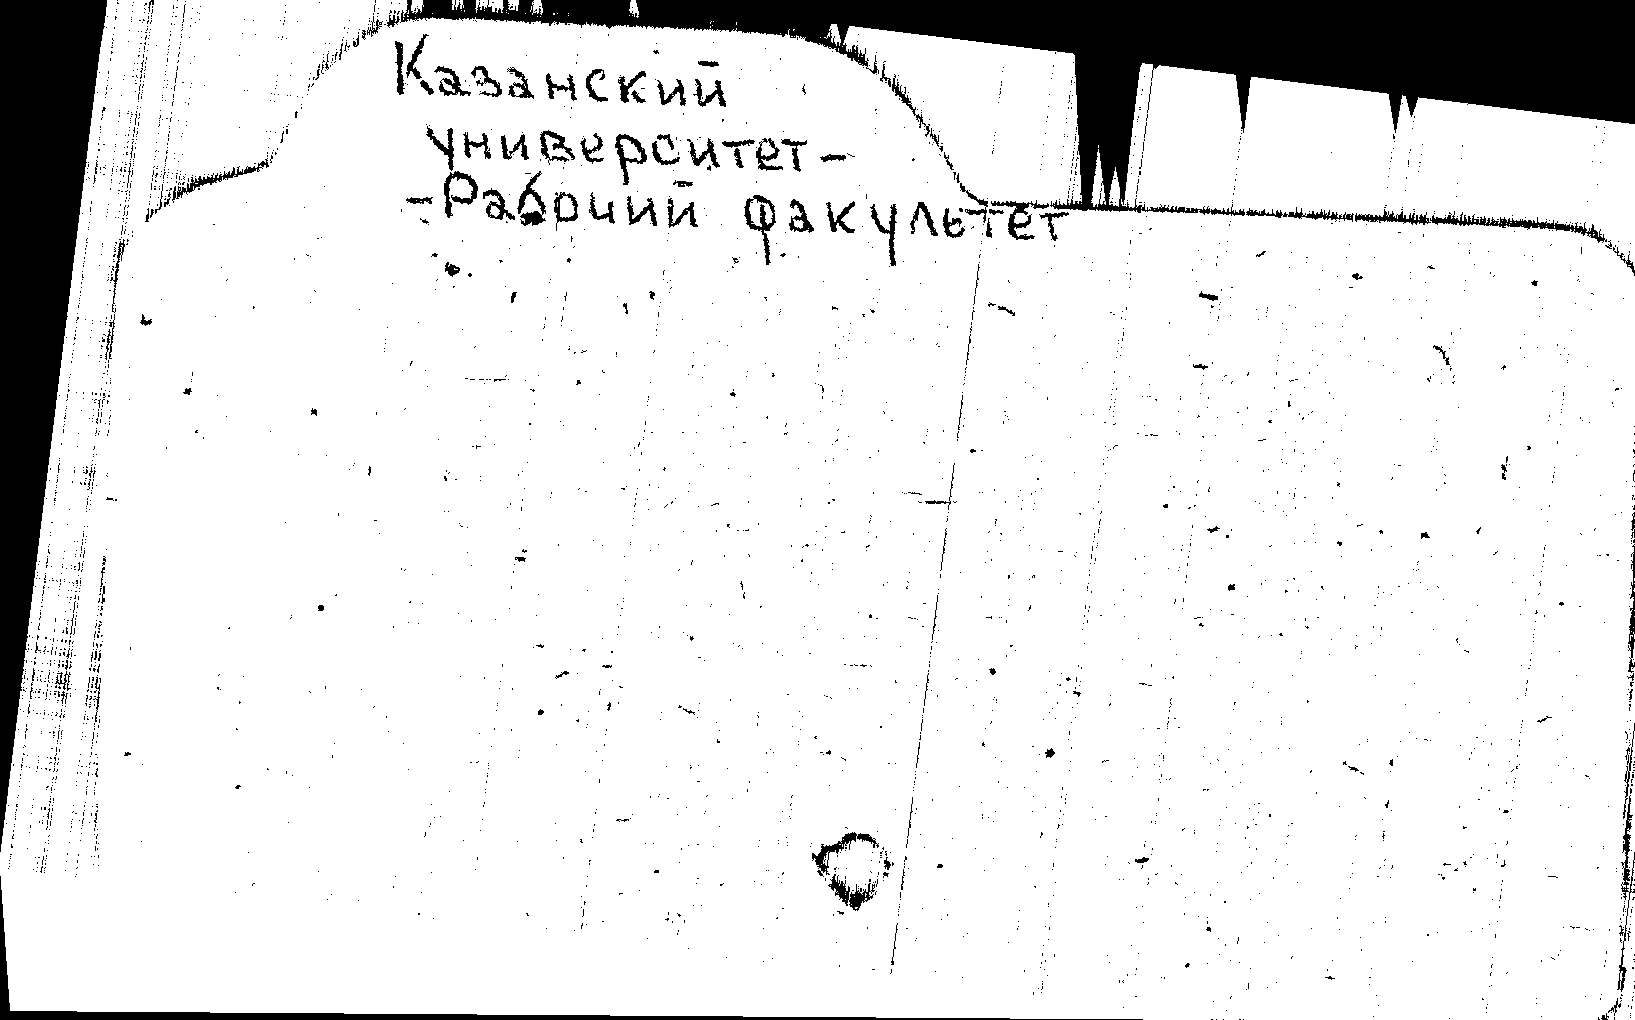 Казанский
университет-
-Рабочий факультет